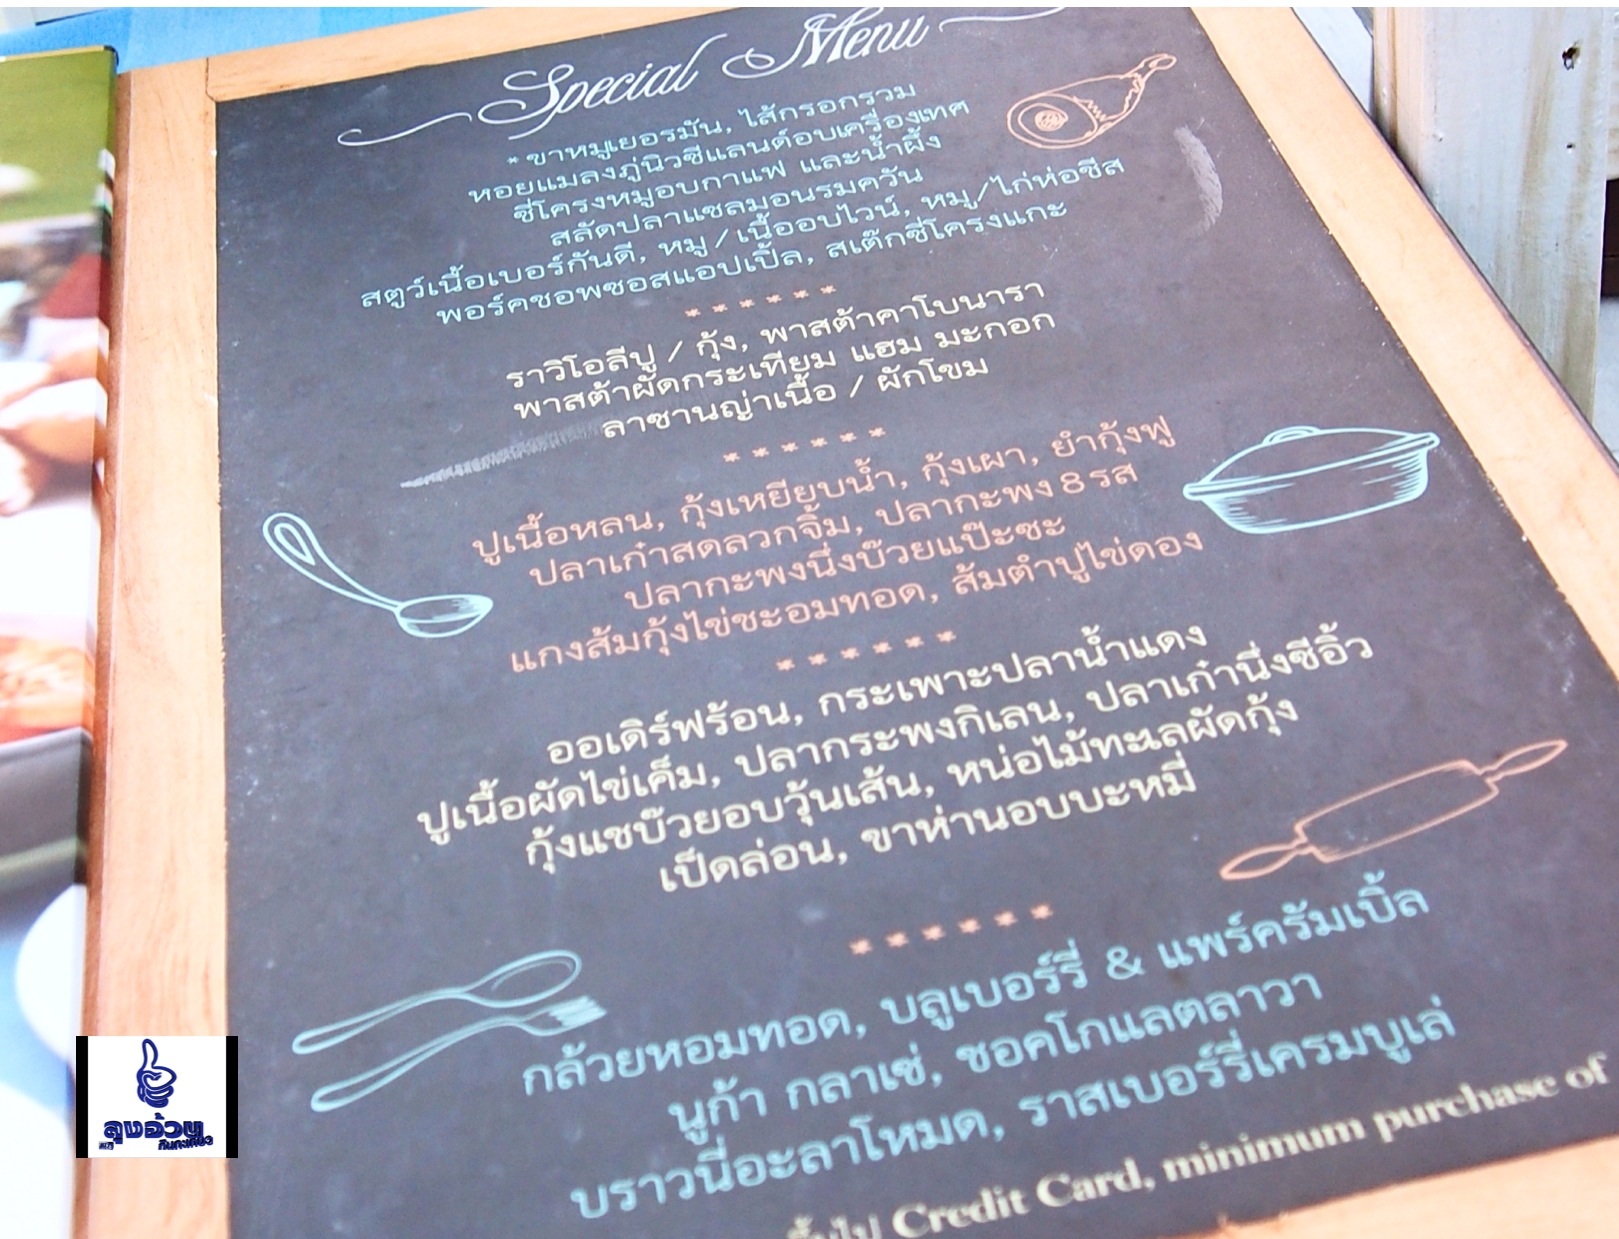 Special Menu
* ขาหมูเยอรมัน, ไส้กรอกรวม
หอยแมลงภู่นิวซีแลนด์อบเครื่องเทศ
ซี่โครงหมูอบกาแฟ และน้ำผึ้ง
สลัดปลาแซลมอนรมควัน
สตูว์เนื้อเบอร์กันดี, หมู / เนื้ออบไวน์, หมู/ไก่ห่อชีส
พอร์คชอพซอสแอปเปิ้ล, สเต๊กซี่โครงแกะ
* * * * * *
ราวิโอลีปู / กุ้ง, พาสต้าคาโบนารา
พาสต้าผัดกระเทียม แฮม มะกอก
ลาซานญ่าเนื้อ / ผักโขม
* * * * *
ปูเนื้อหลน, กุ้งเหยียบน้ำ, กุ้งเผา, ยำกุ้งฟู
ปลาเก๋าสดลวกจิ้ม, ปลากะพง 8 รส
ปลากะพงนึ่งบ๊วยแป๊ะซะ
แกงส้มกุ้งไข่ชะอมทอด, ส้มตำปูไข่ดอง
* * * * * *
ออเดิร์ฟร้อน, กระเพาะปลาน้ำแดง
ปูเนื้อผัดไข่เค็ม, ปลากระพงกิเลน, ปลาเก๋านึ่งซีอิ้ว
กุ้งแชบ๊วยอบวุ้นเส้น, หน่อไม้ทะเลผัดกุ้ง
เป็ดล่อน, ขาห่านอบบะหมี่
* * * * * *
กล้วยหอมทอด, บลูเบอร์รี่ & แพร์ครัมเบิ้ล
นูก้า กลาเซ่, ชอคโกแลตลาวา
บราวนี่อะลาโหมด, ราสเบอร์รี่เครมบูเล่
ขึ้นไป Credit Card, minimum purchase of
ลุงอ้วน
กินกะเที่ยว